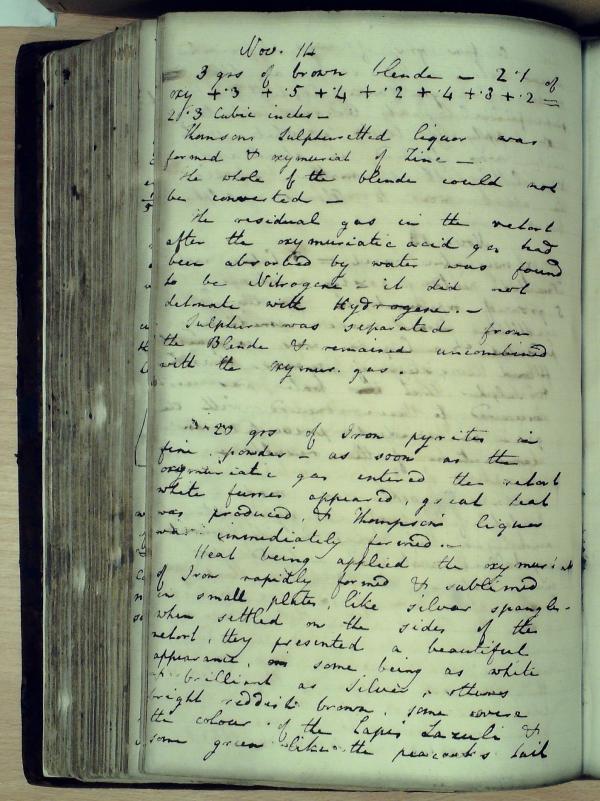 Nov. 14
3 grs of brown blende - 2.1 of
oxy + .3 + .5 + .4 + .2 + .4 + .3 + .2 =
2.3 Cubic inches -
Thomsons Sulphuretted liquor was
formed & oxymuriat of Zinc -
The whole of the blende could not
be converted -
The residual gas in the retort
after the oxymuriatic acid gas had
been absorbed by water was found
to be Nitrogene - it did not
detonate with Hydrogene. -
Sulphur was separated from
the Blende & remained uncombined
with the oxymur. gas.
20 grs of Iron pyrites in
fine powder - as soon as the
oxymuriatic gas entered the retort
white fumes appeared, great heat
was produced, & Thompson's liquor
was immediately formed. -
Heat being applied the oxymuriat
of Iron rapidly formed & sublimed
in small plates, like silver spangles -
when settled on the sides of the
retort, they presented a beautiful
appearance, some being as white
& brilliant as Silver, others
bright reddish brown, some were
the colour of the Lapis Lazuli &
some green like the peacock's tail